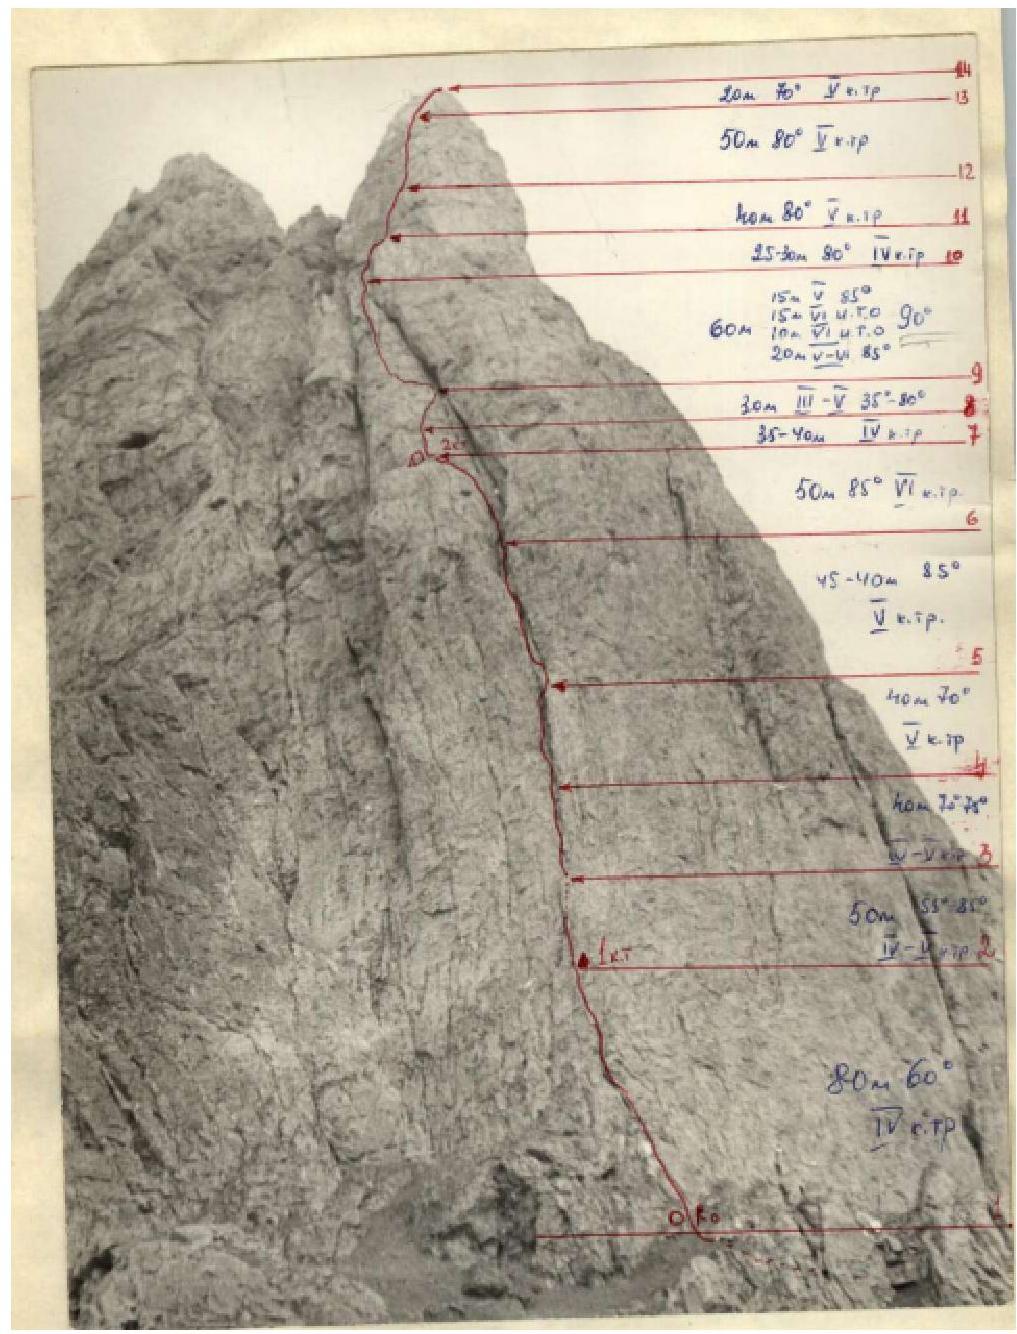 14
20м 70° V к.тр
13
50м 80° V к.тр
12
40м 80° V к.тр
11
25-30м 80° IV к.тр
10
15м V 85°
15м VI И.Т.О
90°
60м
10м VI И.Т.О
20м V-VI 85°
9
30м III-V 35°-80°
8
35-40м IV к.тр
7
2к.т
50м 85° VI к.тр.
6
45-40м 85°
V к.тр.
5
40м 70°
V к.тр
4
40м 70-75°
IV-V к.тр
3
50м 55°-85°
IV-V к.тр
2
1к.т
80м 60°
IV к.тр
1